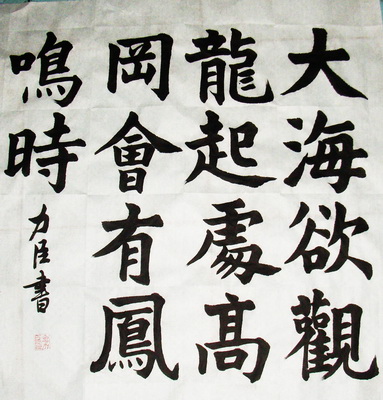 大海欲觀
龍起處高
岡會有鳳
鳴時
力臣書